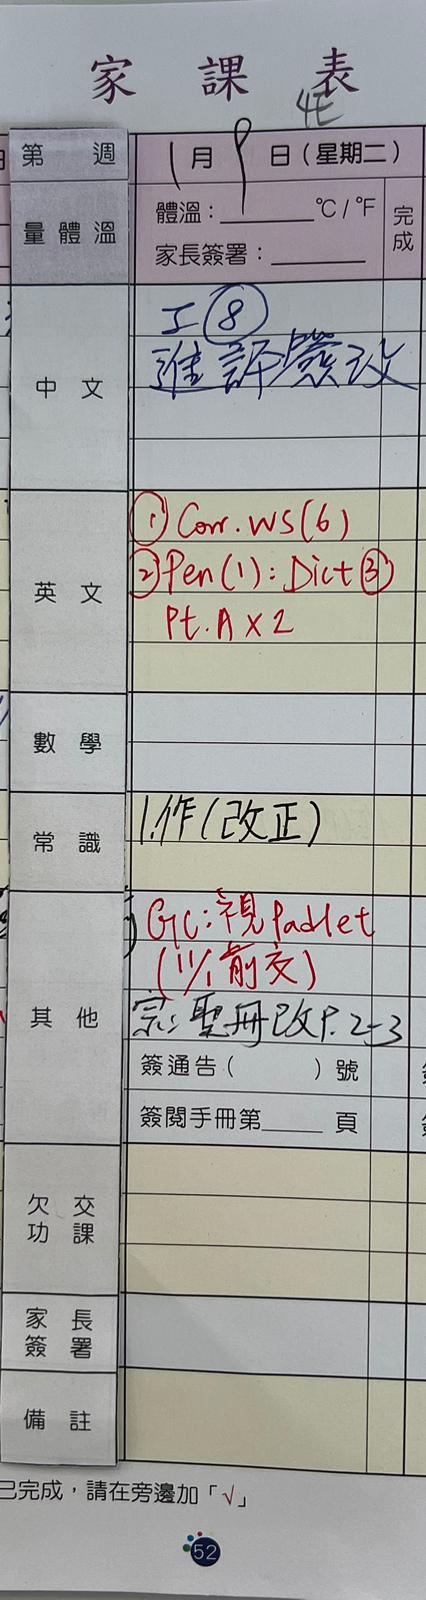 家課表
4E
第 週
1月9日(星期二)
量體溫
體溫：______°C/°F
家長簽署：______
完成
中文
工⑧
進評簽改
英文
① Corr. WS(6)
② Pen(1): Dict③
Pt. A x 2
數學
常識
1.作(改正)
其他
GC: 視Padlet
(11/1前交)
宗: 聖冊改P. 2-3
簽通告( )號
簽閱手冊第____頁
欠交功課
家長簽署
備註
已完成，請在旁邊加「√」
52